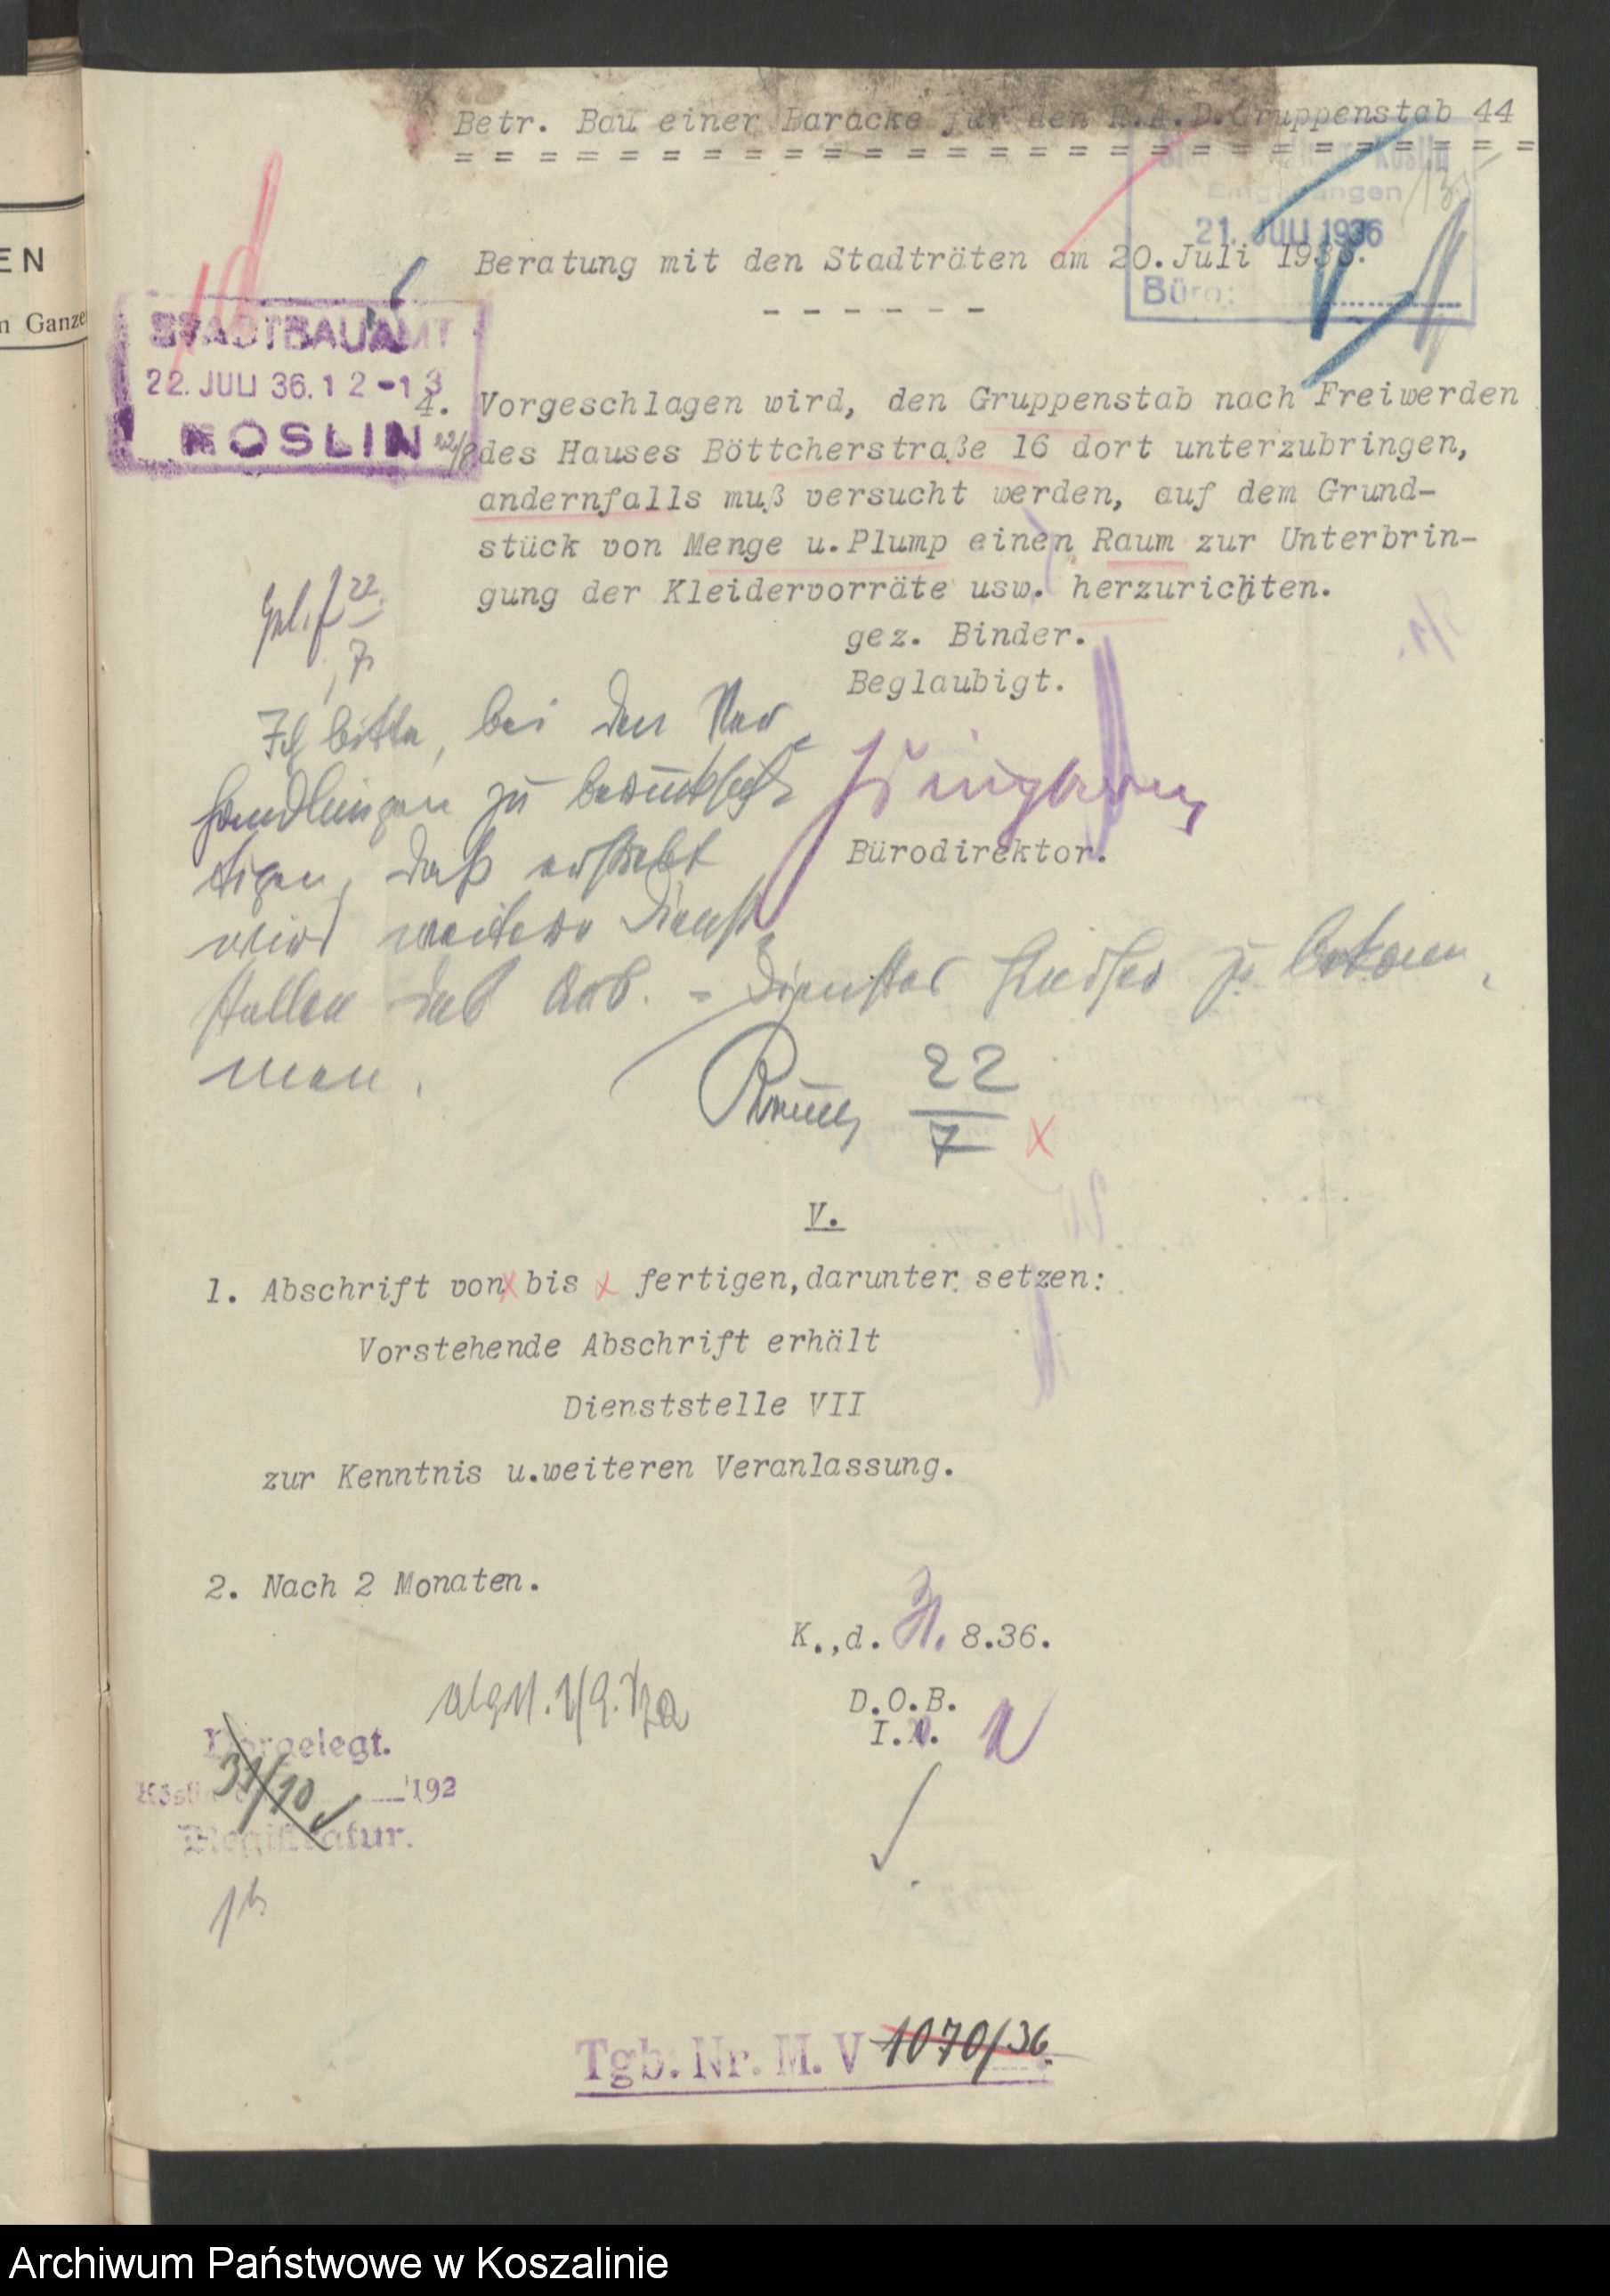 EN
n Ganze
Betr. Bau einer Baracke für den R.A.D.Gruppenstab 44
Köslin
Eingegangen
21. JULI 1936
Büro:
Beratung mit den Stadträten am 20.Juli 1936.
STADTBAUAMT
22. JULI 36. 12-13
KÖSLIN
4. Vorgeschlagen wird, den Gruppenstab nach Freiwerden
des Hauses Böttcherstraße 16 dort unterzubringen,
andernfalls muß versucht werden, auf dem Grund-
stück von Menge u.Plump einen Raum zur Unterbrin-
gung der Kleidervorräte usw. herzurichten.
gez. Binder.
Beglaubigt.
Bürodirektor.
22
7
Ich bitte, bei den Ver
handlungen zu berücksich
tigen, daß erstrebt
wird weitere Dienst
stellen des Arb. - Dienstes hierher zu bekom
men.
22
7 x
V.
1. Abschrift von x bis x fertigen,darunter setzen:
Vorstehende Abschrift erhält
Dienststelle VII
zur Kenntnis u.weiteren Veranlassung.
2. Nach 2 Monaten.
K.,d. 31. 8.36.
D.O.B.
Vorgelegt.
31/10 192
Registratur.
Tgb. Nr. M. V 1070/36.
Archiwum Państwowe w Koszalinie